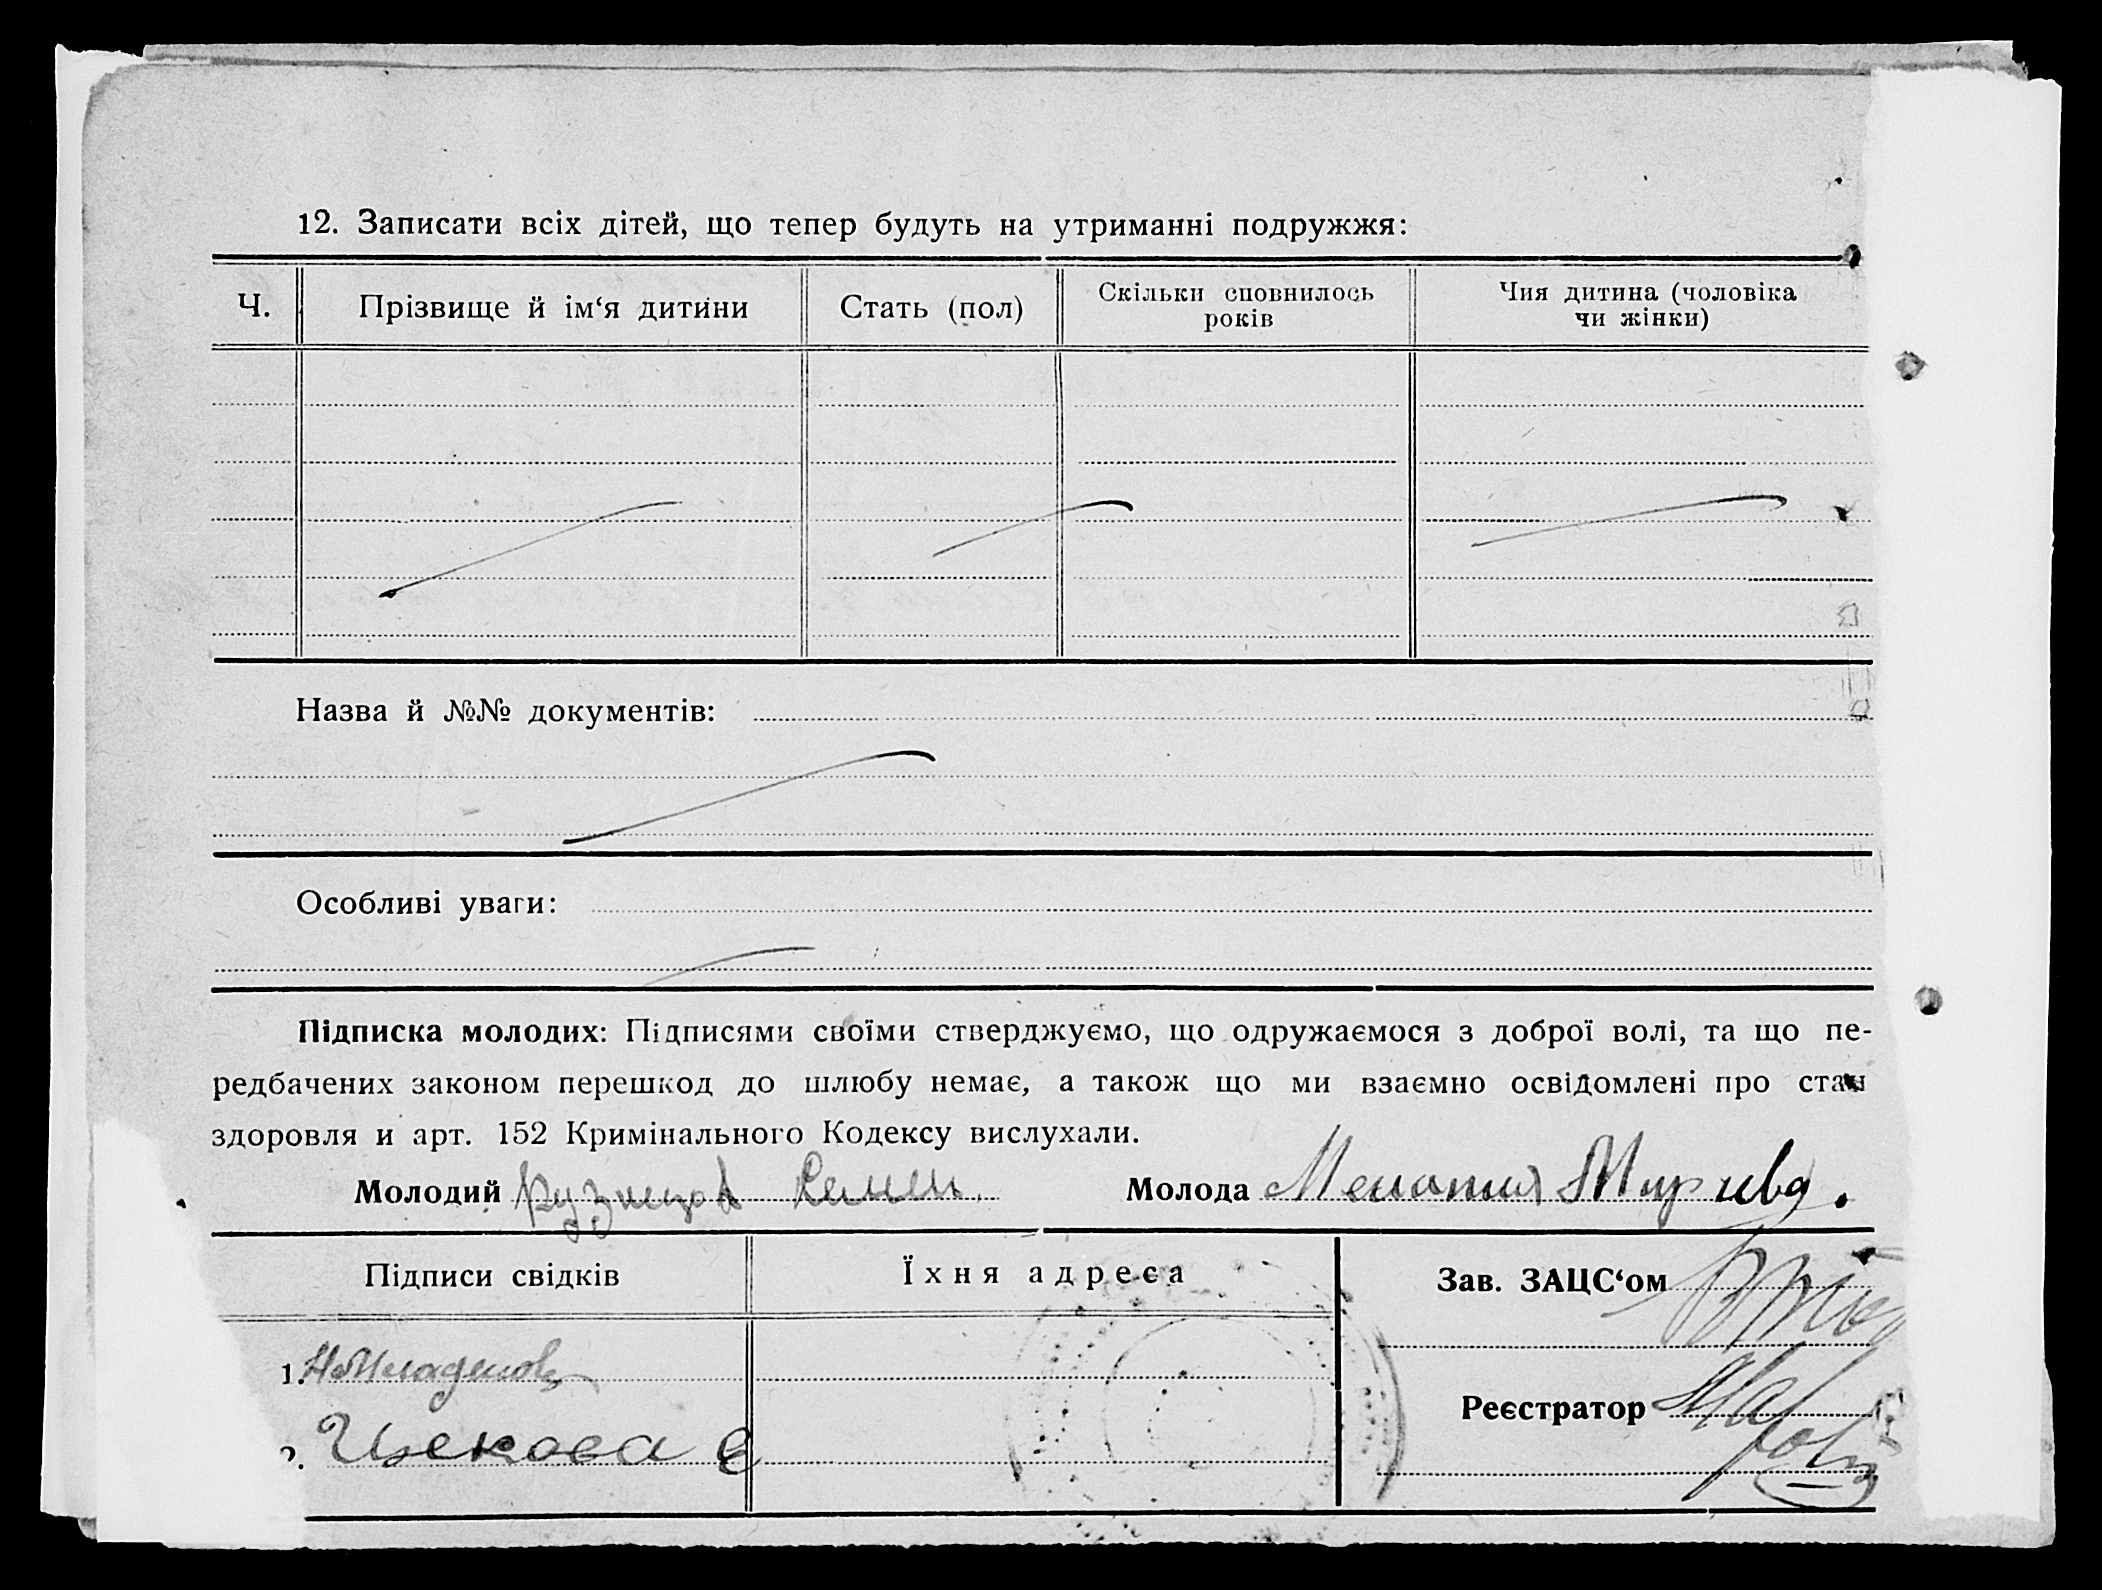 12. Записати всіх дітей, що тепер будуть на утриманні подружжя:
Ч.
Прізвище й ім‘я дитини
Стать (пол)
Скільки сповнилось
років
Чия дитина (чоловіка
чи жінки)
Назва й №№ документів:
Особливі уваги:
Підписка молодих: Підписями своїми стверджуємо, що одружаємося з доброї волі, та що пе-
редбачених законом перешкод до шлюбу немає, а також що ми взаємно освідомлені про стан
здоровля и арт. 152 Кримінального Кодексу вислухали.
Молодий Кузнецов Семен
Молода
Підписи свідків
Їхня адреса
Зав. ЗАЦС‘ом
1.
Реєстратор
2. Цекова Є